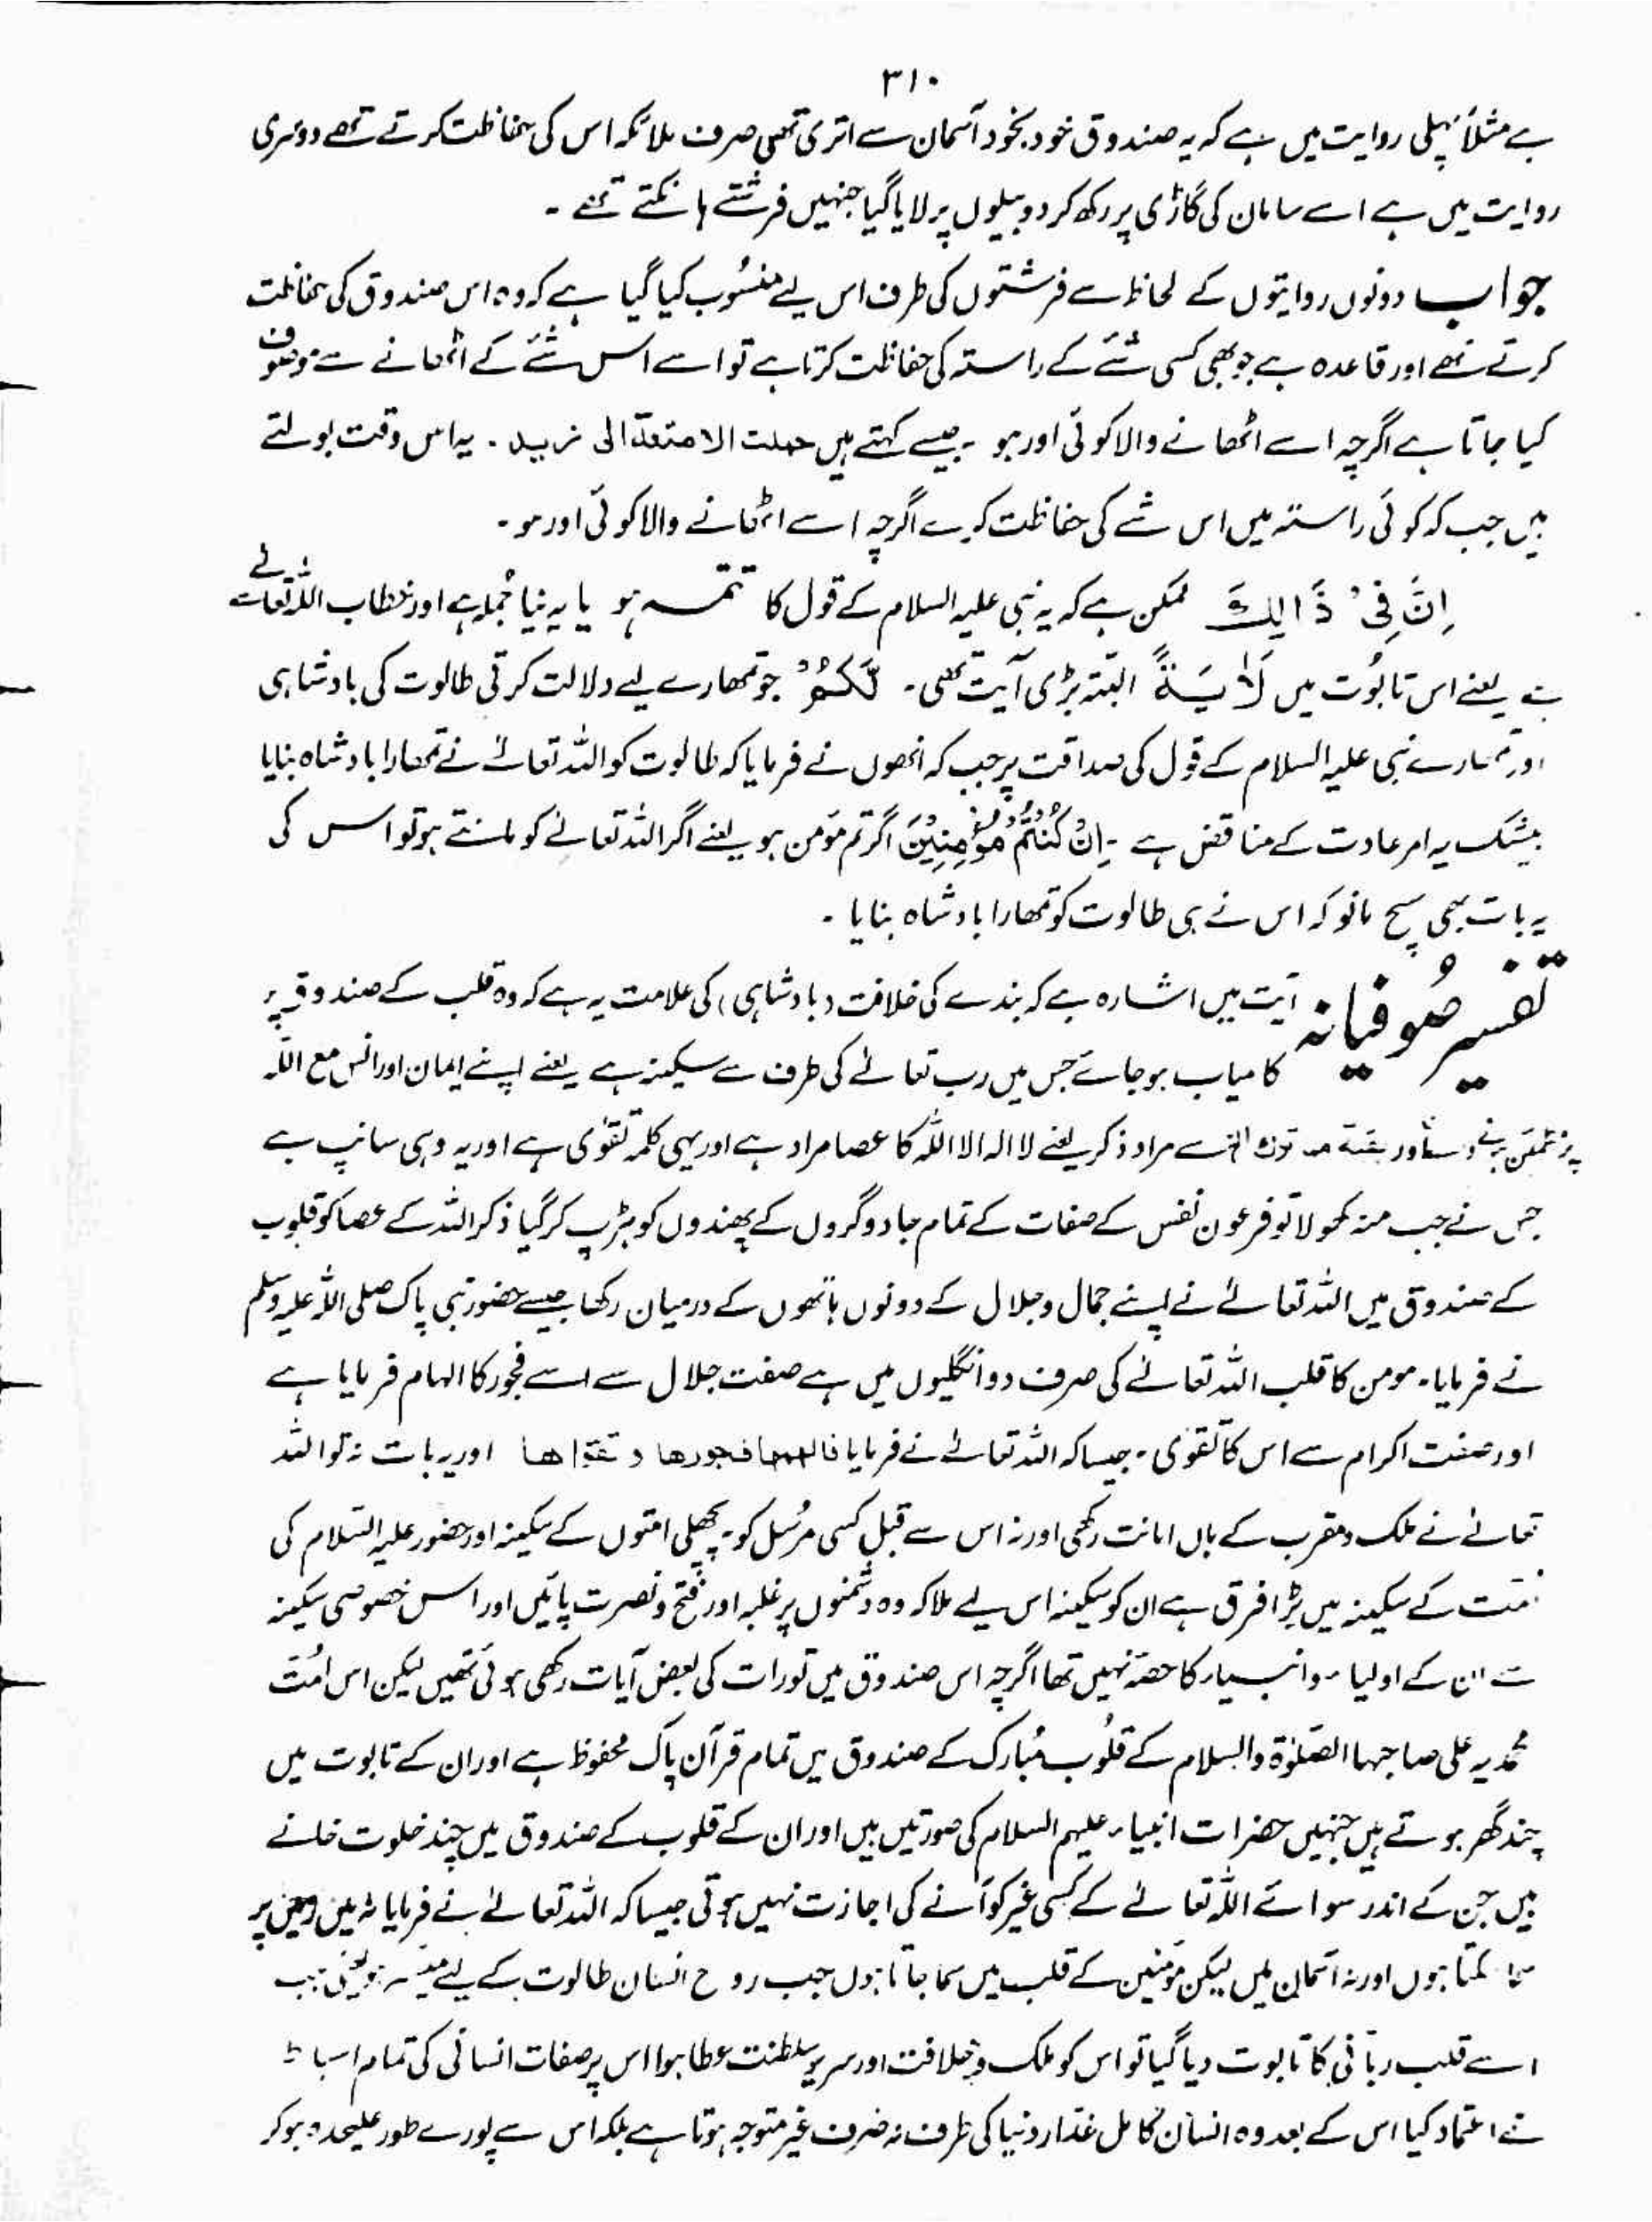 ۳۱۰
ہے مثلاً پہلی روایت میں ہے کہ یہ صندوق خود بخود آسمان سے اتری تھی صرف ملائکہ اس کی حفاظت کرتے تھے دوسری
روایت میں ہے اسے سامان کی گاڑی پر رکھ کر دو بیلوں پر لایا گیا جنہیں فرشتے ہانکتے تھے ۔
جواب دونوں روایتوں کے لحاظ سے فرشتوں کی طرف اس لیے منسُوب کیا گیا ہے کہ وہ اس صندوق کی حفاظت
کرتے تھے اور قاعدہ ہے جو بھی کسی شئے کے راستہ کی حفاظت کرتا ہے تو اسے اس شئے کے اٹھانے سے موصوف
کیا جاتا ہے اگرچہ اسے اٹھانے والا کوئی اور ہو ۔ جیسے کہتے ہیں حملت الامتعۃ الی زید ۔ یہ اس وقت بولتے
ہیں جب کہ کوئی راستہ میں اس شے کی حفاظت کرے اگرچہ اسے اٹھانے والا کوئی اور ہو ۔
اِنَّ فِیْ ذَالِكَ ممکن ہے کہ یہ نبی علیہ السلام کے قول کا تتمہ ہو یا یہ نیا جُملہ ہے اور خطاب اللہ تعالےٰ
ہے یعنے اس تابُوت میں لَاٰیَۃً البتہ بڑی آیت تھی ۔ لَّكُمْ جو تمھارے لیے دلالت کرتی طالوت کی بادشاہی
اور تمہارے نبی علیہ السلام کے قول کی صداقت پر جب کہ انھوں نے فرمایا کہ طالوت کو اللہ تعالےٰ نے تمھارا بادشاہ بنایا
بیشک یہ امر عادت کے مناقض ہے ۔ اِنْ كُنْتُمْ مُّؤْمِنِيْنَ اگر تم مؤمن ہو یعنے اگر اللہ تعالےٰ کو مانتے ہو تو اس کی
یہ بات بھی سچ مانو کہ اس نے ہی طالوت کو تمھارا بادشاہ بنایا ۔
تفسیر صُوفیانہ آیت میں اشارہ ہے کہ بندے کی خلافت (بادشاہی) کی علامت یہ ہے کہ وہ قلب کے صندوق پر
کامیاب ہو جائے جس میں رب تعالےٰ کی طرف سے سکینہ ہے یعنے اپنے ایمان اور انس مع اللہ
سے مراد ذکر یعنے لا الہ الا اللہ کا عصا مراد ہے اور یہی کلمہ تقوٰی ہے اور یہ وہی سانپ ہے
جس نے جب منہ کھولا تو فرعون نفس کے صفات کے تمام جادوگروں کے پھندوں کو ہڑپ کر گیا ذکر اللہ کے عصا کو قلوب
کے صندوق میں اللہ تعالےٰ نے اپنے جمال و جلال کے دونوں ہاتھوں کے درمیان رکھا جیسے حضور نبی پاک صلی اللہ علیہ وسلم
نے فرمایا ۔ مومن کا قلب اللہ تعالےٰ کی صرف دو انگلیوں میں ہے صفت جلال سے اسے فجور کا الہام فرمایا ہے
اور صفت اکرام سے اس کا تقوٰی ۔ جیسا کہ اللہ تعالےٰ نے فرمایا فالھمھا فجورھا و تقوٰاھا اور یہ بات نہ تو اللہ
تعالےٰ نے ملک و مقرب کے ہاں امانت رکھی اور نہ اس سے قبل کسی مرُسل کو ۔ پچھلی امتوں کے سکینہ اور حضور علیہ السّلام کی
اُمّت کے سکینہ میں بڑا فرق ہے ان کو سکینہ اس لیے ملا کہ وہ دشمنوں پر غلبہ اور فتح و نصرت پائیں اور اس خصوصی سکینہ
سے ان کے اولیاء و انبیاء کا حصّہ نہیں تھا اگرچہ اس صندوق میں تورات کی بعض آیات رکھی ہوئی تھیں لیکن اس اُمّت
محمدیہ علی صاحبہا الصّلوٰۃ والسلام کے قلُوب مُبارک کے صندوق میں تمام قرآن پاک محفوظ ہے اور ان کے تابوت میں
چند گھر ہوتے ہیں جنہیں حضرات انبیاء علیہم السلام کی صورتیں ہیں اور ان کے قلوب کے صندوق میں چند خلوت خانے
ہیں جن کے اندر سوائے اللہ تعالےٰ کے کسی غیر کو آنے کی اجازت نہیں ہوتی جیسا کہ اللہ تعالےٰ نے فرمایا نہ میں زمین پر
سما سکتا ہوں اور نہ آسمان میں لیکن مومنین کے قلب میں سما جاتا ہوں جب روح انسان طالوت کے لیے میسر ہوئی جب
اسے قلب ربّانی کا تابوت دیا گیا تو اس کو ملک و خلافت اور سریر سلطنت عطا ہوا اس پر صفات انسانی کی تمام اسباط
نے اعتماد کیا اس کے بعد وہ انسان کامل غدّار دنیا کی طرف نہ صرف غیر متوجہ ہوتا ہے بلکہ اس سے پورے طور علیحدہ ہو کر